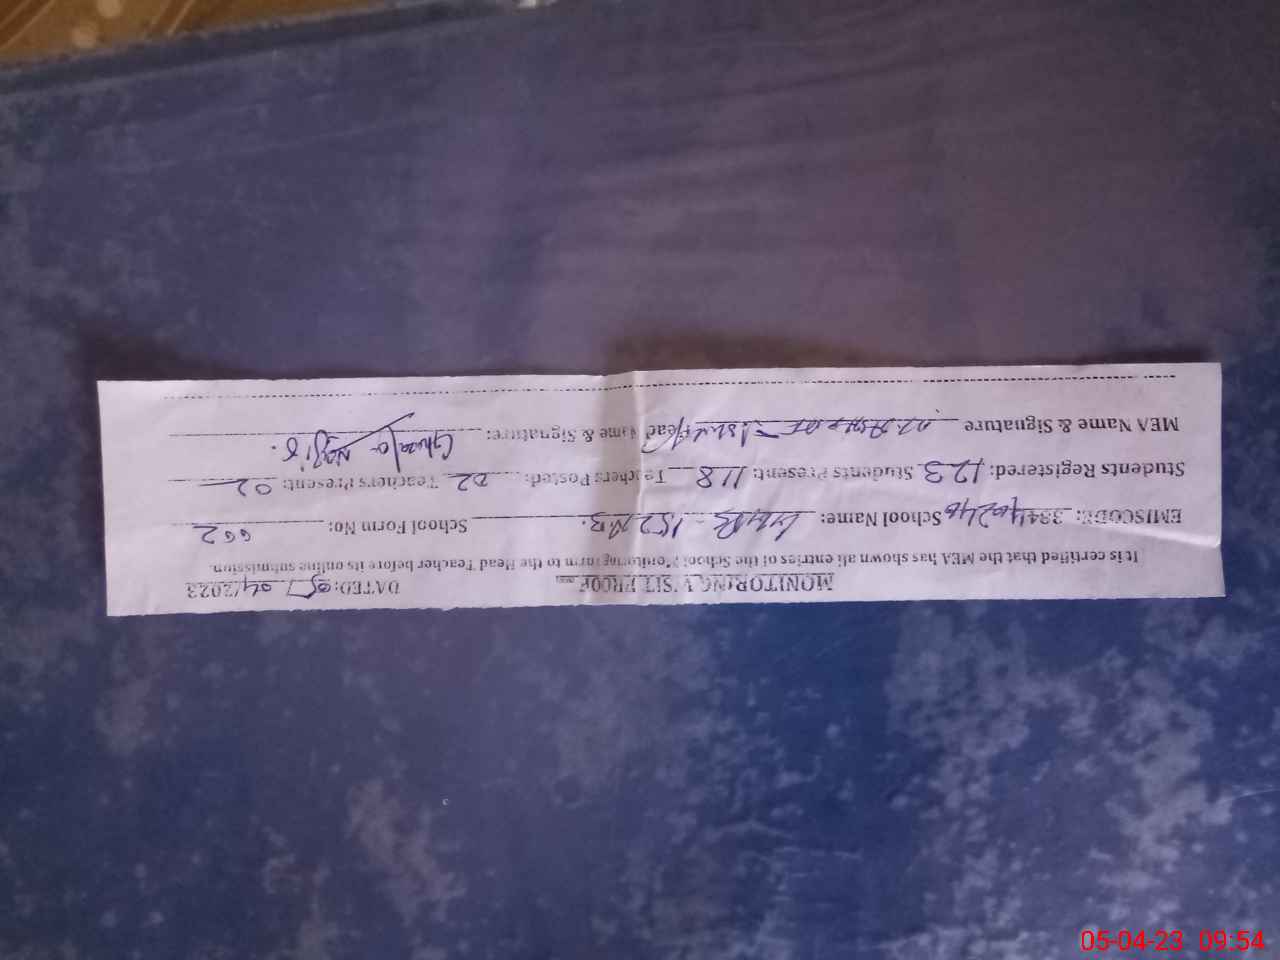 MONITORING VISIT PROOF DATED: 05/04/2023
It is certified that the MEA has shown all entries of the School Monitoring form to the Head Teacher before its online submission.
EMISCODE: 38440240 School Name: School Form No: 662
Students Registered: 123 Students Present: 118 Teachers Posted: 02 Teachers Present: 02
MEA Name & Signature Head Name & Signature: Ghazala
05-04-23 09:54